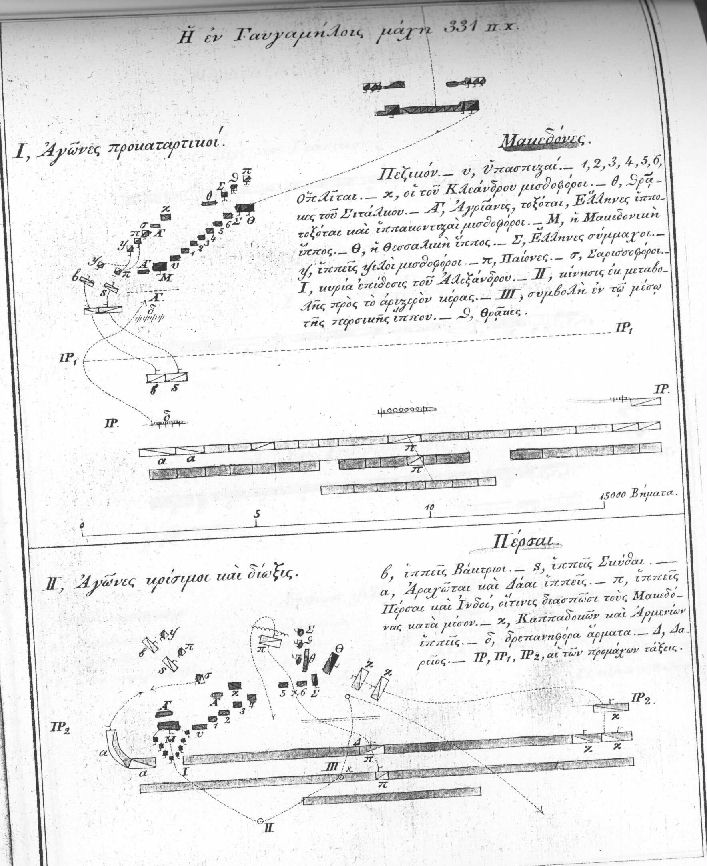 Ἡ ἐν Γαυγαμήλοις μάχη 331 π.χ.
I, Ἀγῶνες προκαταρτικοί.
Μακεδόνες.
Πεζικόν.— υ, ὑπασπισταί.— 1, 2, 3, 4, 5, 6,
Ὁπλῖται.— κ, οἱ τοῦ Κλεάνδρου μισθοφόροι.— θ, Θρᾷ-
κες τοῦ Σιτάλκου.— Α, Ἀγριᾶνες, τοξόται, Ἕλληνες ἱππο-
τοξόται καὶ ἱππακοντισταὶ μισθοφόροι.— Μ, ἡ Μακεδονικὴ
ἵππος.— Θ, ἡ Θεσσαλικὴ ἵππος.— Σ, Ἕλληνες σύμμαχοι.—
ψ, ἱππεῖς ψιλοὶ μισθοφόροι.— π, Παίονες.— σ, Σαρισσοφόροι.—
I, κυρία ἐπίθεσις τοῦ Ἀλεξάνδρου.— II, κίνησις ἐκ μεταβο-
λῆς πρὸς τὸ ἀριστερὸν κέρας.— III, συμβολὴ ἐν τῷ μέσῳ
τῆς περσικῆς ἵππου.— Ͽ, Θρᾷκες.
θ Σ Ͽ π
κ
σ
π Α
ψ
6 Σ Θ
5
4
3
2
1
υ
ψ π Α Μ
β
s
Α
δ
ΙΡ₁
ΙΡ₁
β s
ΙΡ.
δ
ΙΡ.
α α
π
π
0 5 10 15000 Βήματα.
II, Ἀγῶνες κρίσιμοι καὶ δίωξις.
Πέρσαι.
β, ἱππεῖς Βάκτριοι.— s, ἱππεῖς Σκύθαι.—
α, Ἀραχῶται καὶ Δάαι ἱππεῖς.— π, ἱππεῖς
Πέρσαι καὶ Ἰνδοί, οἵτινες διασπῶσι τοὺς Μακεδό-
νας κατὰ μέσον.— κ, Καππαδοκῶν καὶ Ἀρμενίων
ἱππεῖς.— δ, δρεπανηφόρα ἅρματα.— Δ, Δα-
ρεῖος.— ΙΡ, ΙΡ₁, ΙΡ₂, αἱ τῶν προμάχων τάξεις.
β ψ
s π
σ
π
Σ
θ
Θ
κ κ
Α
Α κ
5 6 Σ
4
3
2
1
υ
Μ
ΙΡ₂
ΙΡ₂
κ
α
α
I
Δ
π
κ κ
III
π
II